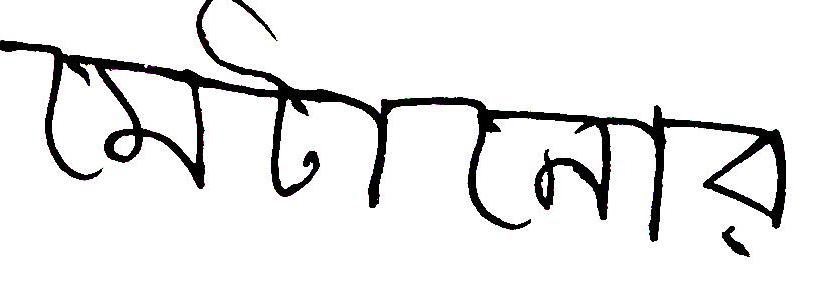 মেটানোর